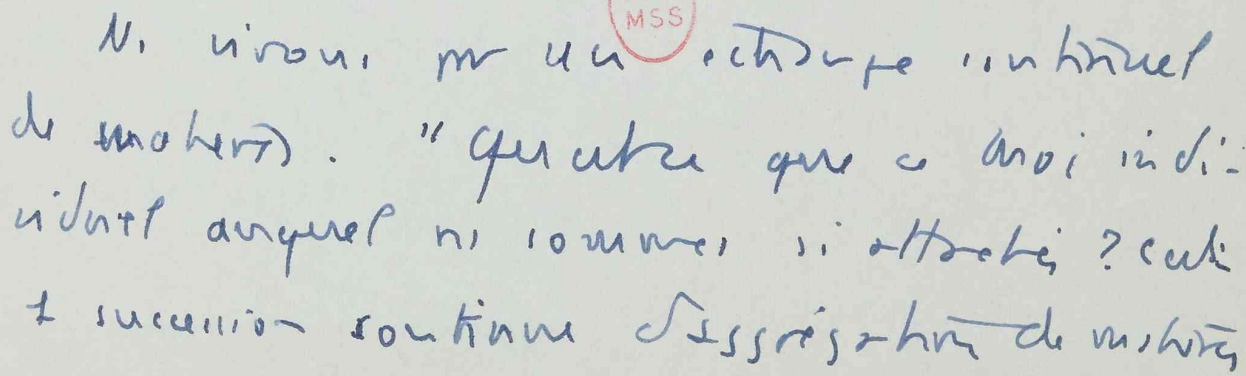 MSS
Ns vivons par un echange continuel
de matières. "Qu'est ce que ce moi indi-
viduel auquel ns sommes si attachés ?
1 succession continue d'aggrégations de matières